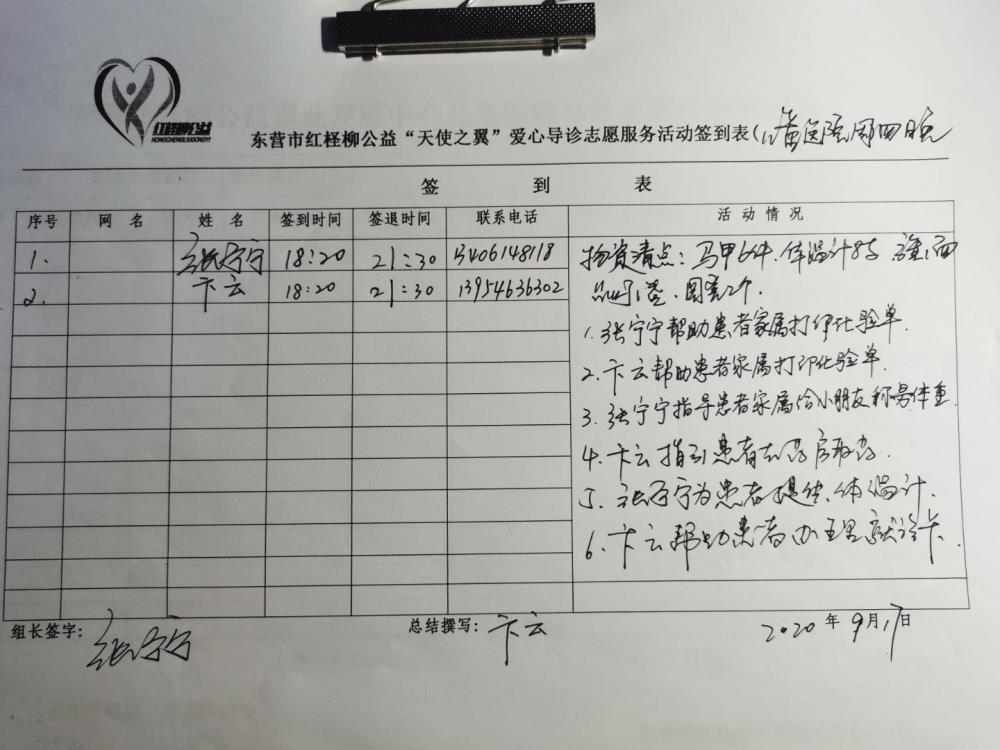 红柽柳公益
HONGCHENGLIUGONGYI
东营市红柽柳公益“天使之翼”爱心导诊志愿服务活动签到表(
医院周四晚
签 到 表
序号 网 名 姓 名 签到时间 签退时间 联系电话 活 动 情 况
1. 张宁宁 18:20 21:30 13406148118 物资清点:马甲6件、体温计8支
2. 卞云 18:20 21:30 13954636302
1.张宁宁帮助患者家属打印化验单.
2.卞云帮助患者家属打印化验单.
3.张宁宁指导患者家属给小朋友称量体重.
4.卞云指引患者去药房取药.
5.张宁宁为患者提供体温计.
6.卞云帮助患者办理就诊卡.
组长签字: 张宁宁 总结撰写: 卞云 2020 年 9月17日